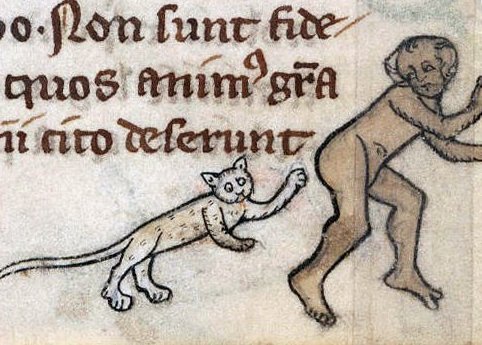 Non sunt fide
quos animꝰ gr̃a
cito deserunt